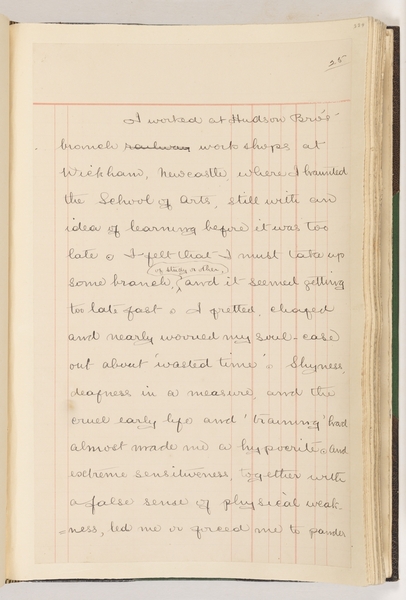 25
I worked at Hudson Bro's'
branch railway work shops at
Wickham, Newcastle, where I haunted
the School of Arts, still with an
idea of learning before it was too
late. I felt that I must take up
of study or other,
some branch, and it seemed getting
too late fast. I fretted, chafed
and nearly worried my soul-case
out about 'wasted time'. Shyness,
deafness in a measure, and the
cruel early life and 'training' had
almost made me a hypocrite. and
extreme sensitiveness, together with
a false sense of physical weak-
ness, led me or forced me to pander